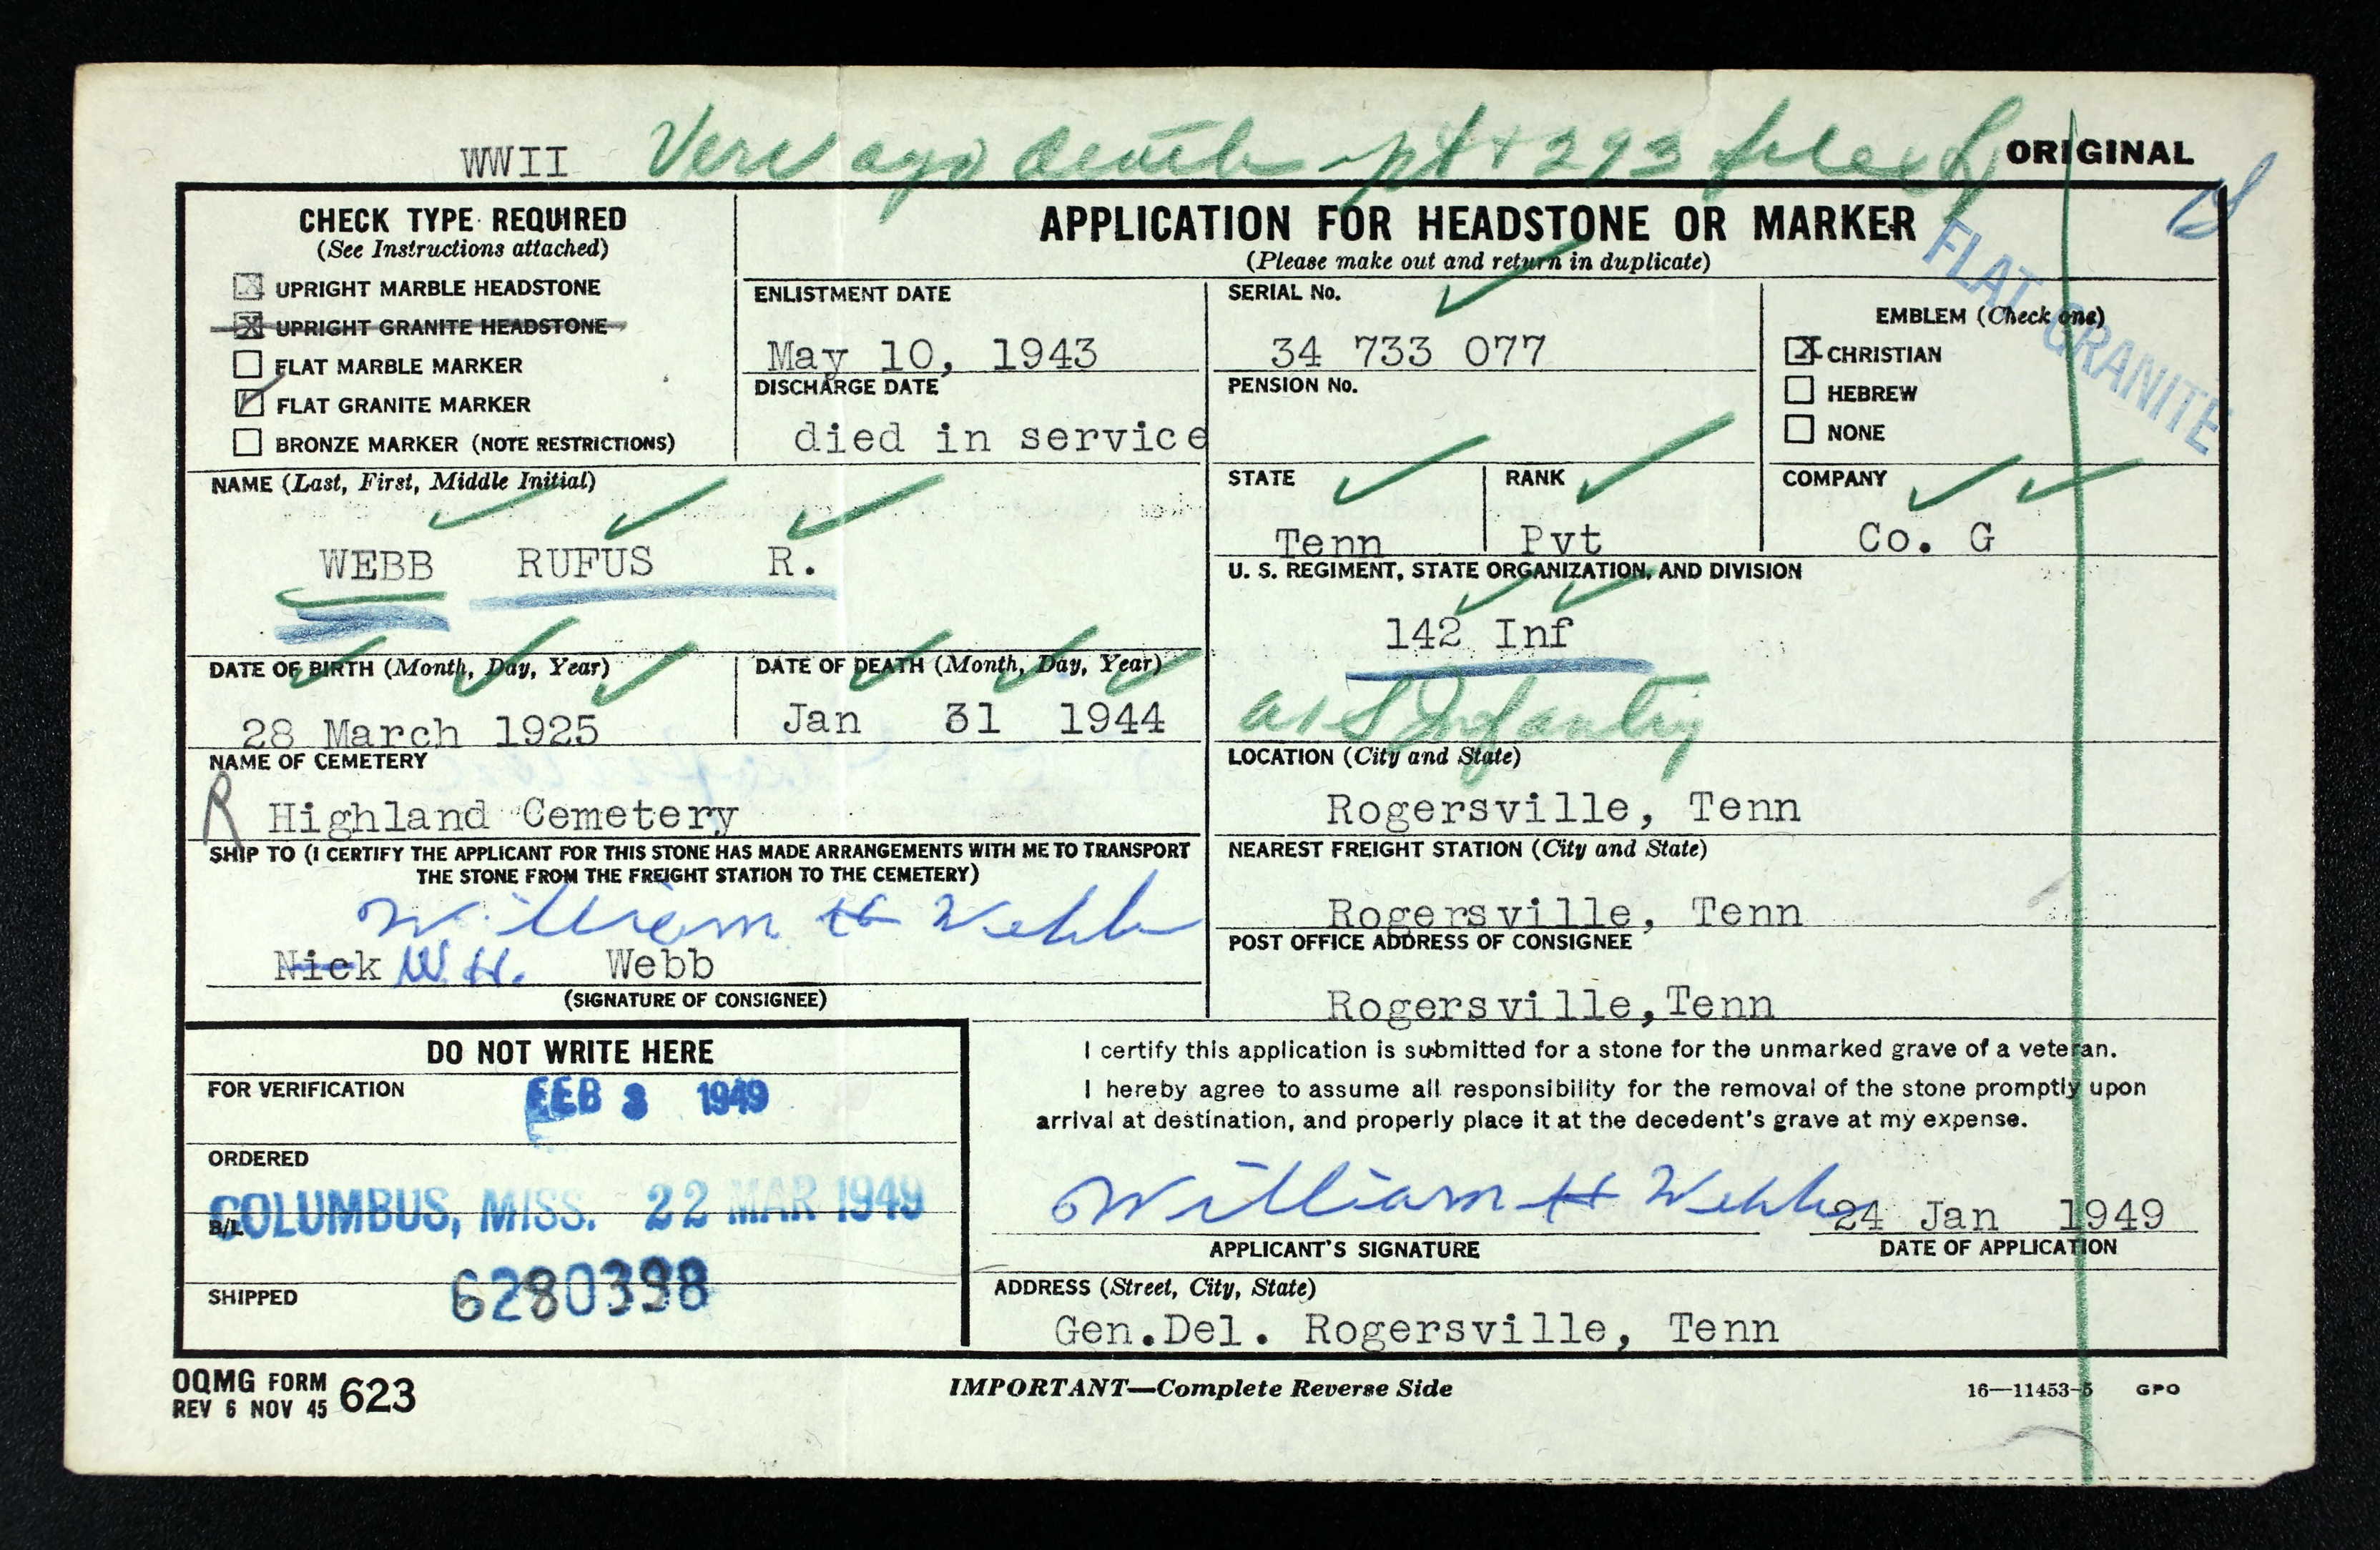 WWII
ORIGINAL
CHECK TYPE REQUIRED
(See Instructions attached)
X UPRIGHT MARBLE HEADSTONE
X UPRIGHT GRANITE HEADSTONE
FLAT MARBLE MARKER
FLAT GRANITE MARKER
BRONZE MARKER (NOTE RESTRICTIONS)
APPLICATION FOR HEADSTONE OR MARKER
(Please make out and return in duplicate)
ENLISTMENT DATE
May 10, 1943
DISCHARGE DATE
died in service
SERIAL No.
34 733 077
PENSION No.
EMBLEM (Check one)
X CHRISTIAN
HEBREW
NONE
FLAT GRANITE
NAME (Last, First, Middle Initial)
WEBB RUFUS R.
STATE
Tenn
RANK
Pvt
COMPANY
Co. G
U. S. REGIMENT, STATE ORGANIZATION, AND DIVISION
142 Inf
Infantry
DATE OF BIRTH (Month, Day, Year)
28 March 1925
DATE OF DEATH (Month, Day, Year)
Jan 31 1944
NAME OF CEMETERY
R Highland Cemetery
LOCATION (City and State)
Rogersville, Tenn
SHIP TO (I CERTIFY THE APPLICANT FOR THIS STONE HAS MADE ARRANGEMENTS WITH ME TO TRANSPORT
THE STONE FROM THE FREIGHT STATION TO THE CEMETERY)
William H Webb
Nick W.H. Webb
(SIGNATURE OF CONSIGNEE)
NEAREST FREIGHT STATION (City and State)
Rogersville, Tenn
POST OFFICE ADDRESS OF CONSIGNEE
Rogersville,Tenn
DO NOT WRITE HERE
FOR VERIFICATION
FEB 3 1949
ORDERED
COLUMBUS, MISS. 22 MAR 1949
B/L
6280398
SHIPPED
I certify this application is submitted for a stone for the unmarked grave of a veteran.
I hereby agree to assume all responsibility for the removal of the stone promptly upon
arrival at destination, and properly place it at the decedent's grave at my expense.
William H Webb 24 Jan 1949
APPLICANT'S SIGNATURE
DATE OF APPLICATION
ADDRESS (Street, City, State)
Gen.Del. Rogersville, Tenn
OQMG FORM 623
REV 6 NOV 45
IMPORTANT—Complete Reverse Side
16—11453-5 GPO